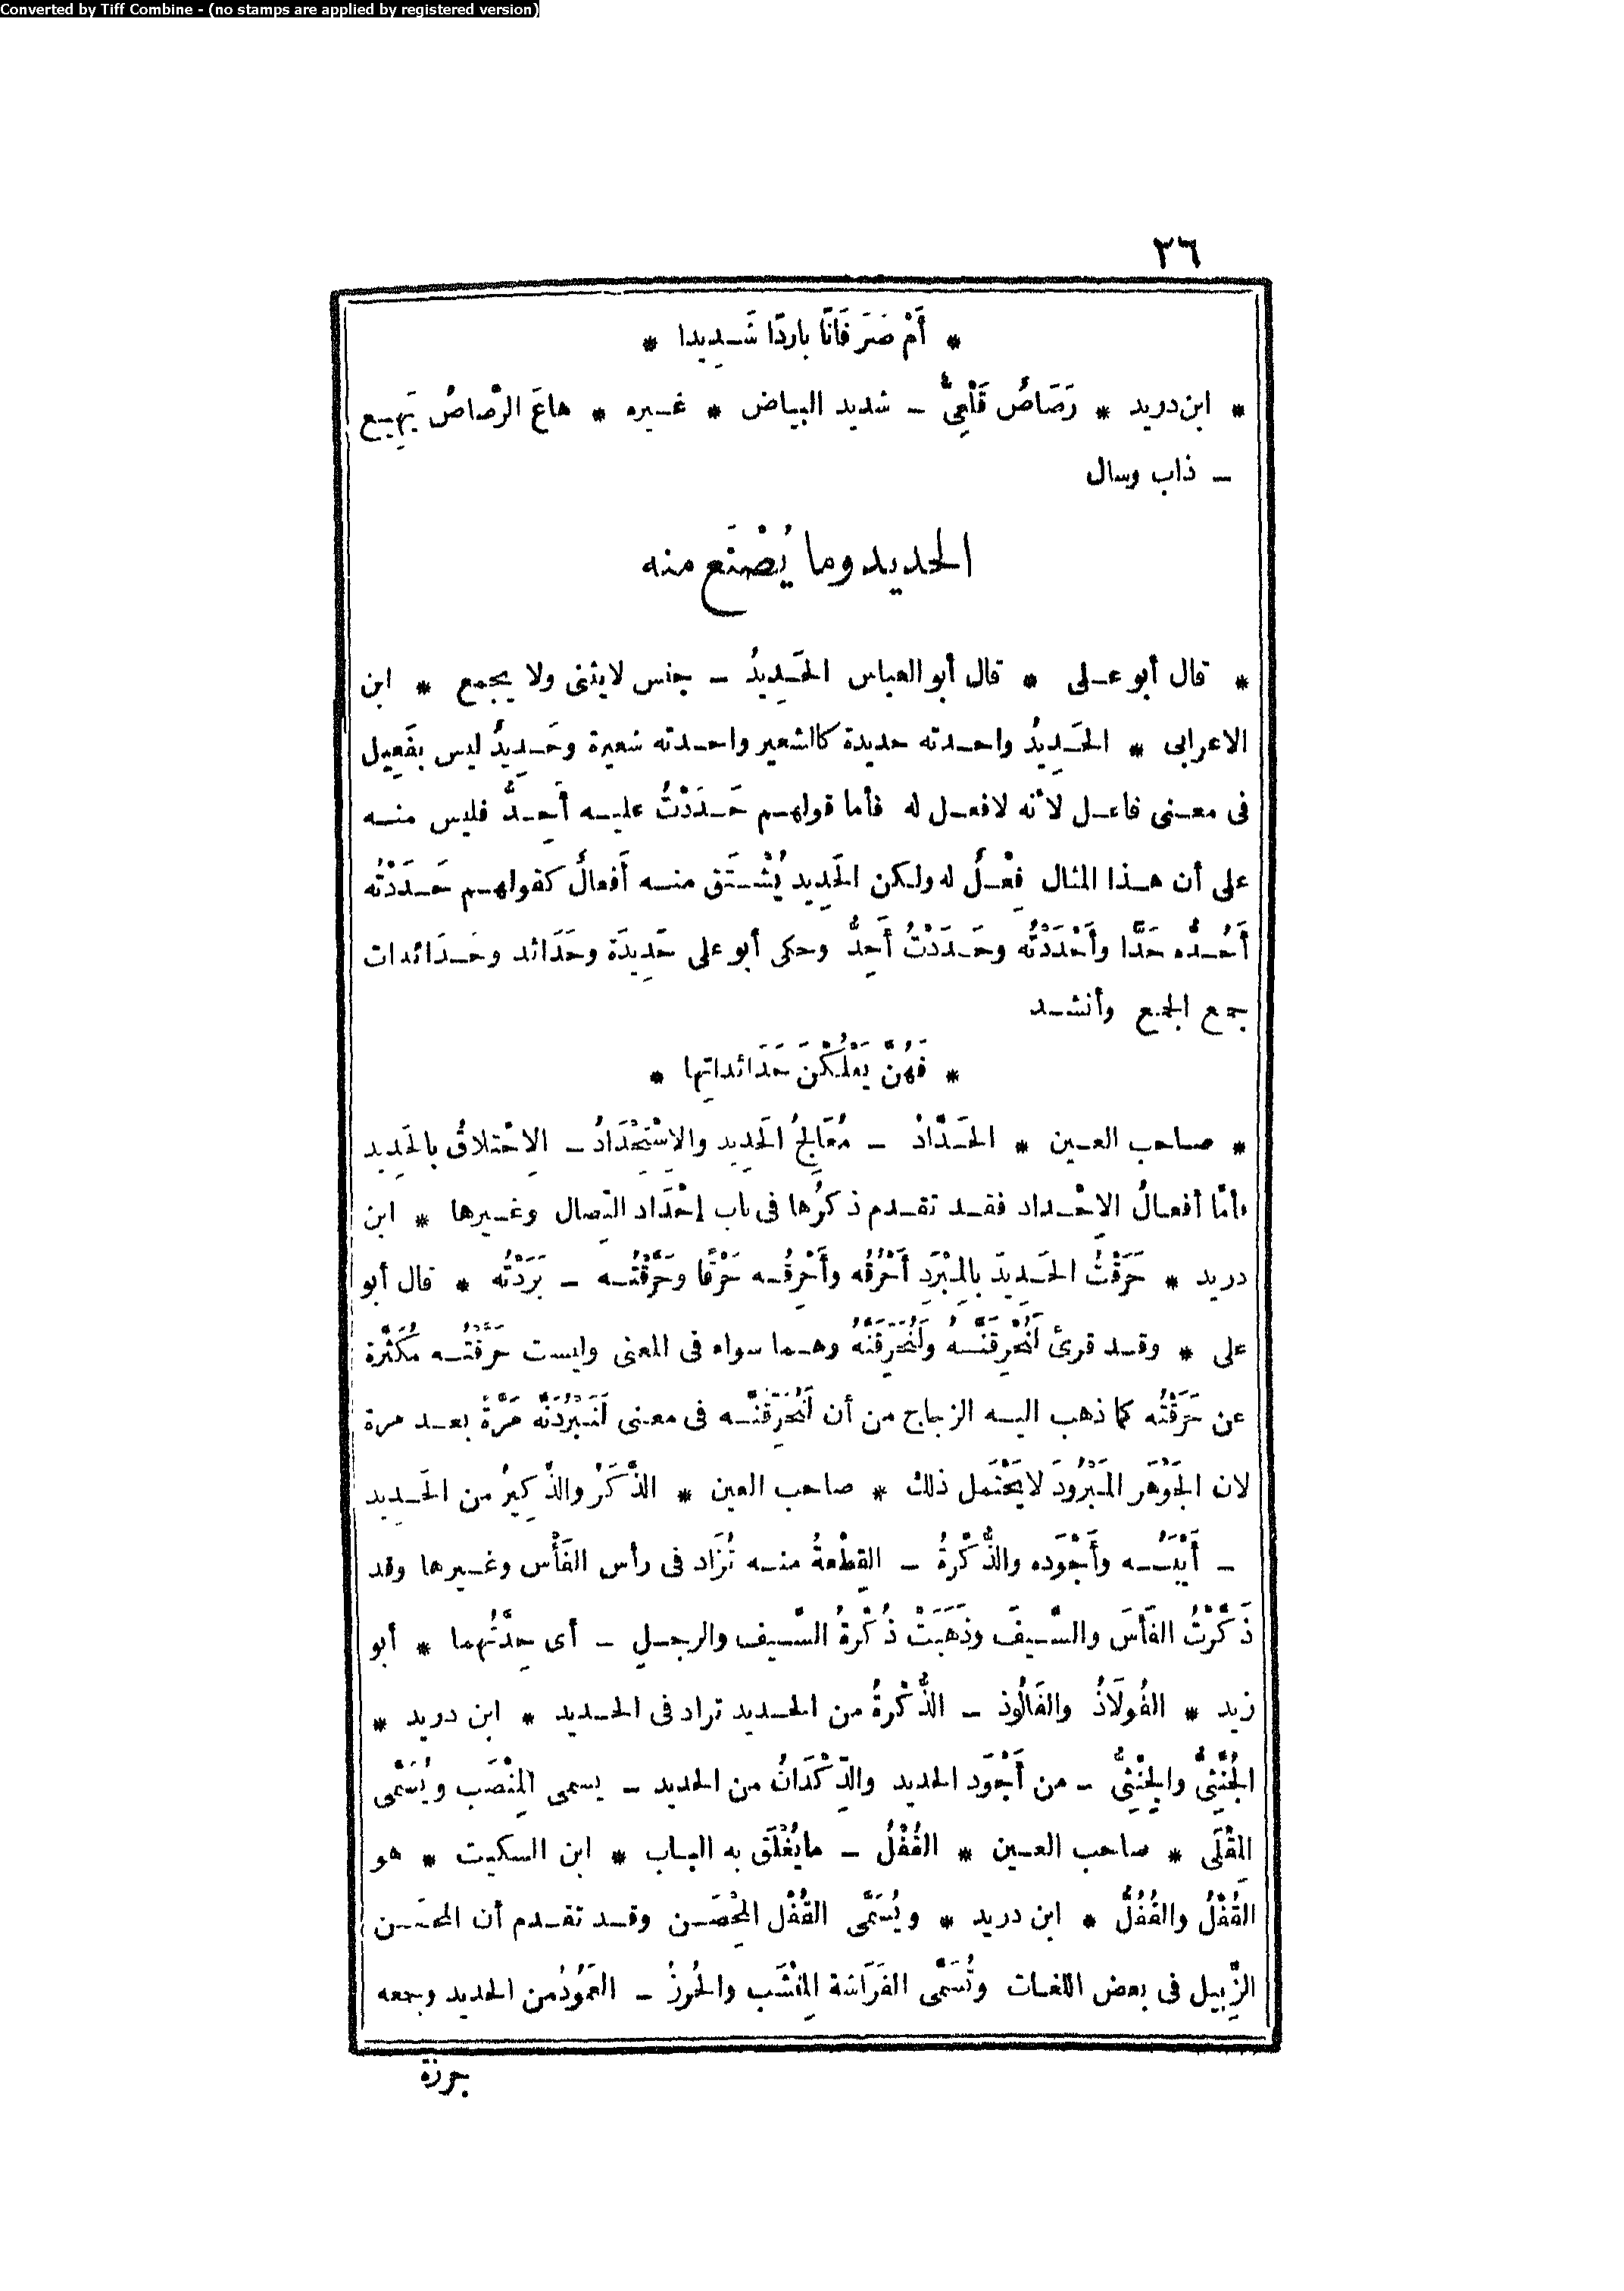 Converted by Tiff Combine - (no stamps are applied by registered version)
٣٦
* أَمْ صَرَفَانًا باردًا شَديدا *
* ابن دريد * رَصَاصٌ قَلْعِىٌّ - شديد البياض * غيره * هاعَ الرَّصاصُ يَهِيع
- ذاب وسال
الحديد وما يُصْنَع منه
* قال أبو على * قال أبو العباس الحَدِيدُ - جنس لا يثنى ولا يجمع * ابن
الاعرابى * الحَدِيدُ واحدته حديدة كالشعير واحدته شعيرة وحَدِيدٌ ليس بفَعِيل
فى معنى فاعل لأنه لا فعل له فأما قولهم حَدَدْتُ عليه أَحِدُّ فليس منه
على أن هذا المثال فِعْلٌ له ولكن الحَدِيد يُشْتَق منه أَفعالٌ كقولهم حَدَدْتُه
أَحُدُّه حَدًّا وأَحْدَدْتُه وحَدَدْتُ أَحِدُّ وحكى أبو على حَدِيدَة وحَدَائد وحَدَائدات
جمع الجمع وأنشد
* فَهُنَّ يَعْلُكْنَ حَدَائداتِها *
* صاحب العين * الحَدَّادُ - مُعَالِجُ الحَدِيد والاِسْتِحْدَادُ - الاِحْتلاقُ بالحَدِيد
وأمَّا أفعالُ الاِحْداد فقد تقدم ذكرُها فى باب إحْدَاد النِّصال وغيرها * ابن
دريد * حَرَقْتُ الحَدِيدَ بالمِبْرَدِ أَحْرُقُه وأَحْرِقُه حَرْقًا وحَرَّقْتُه - بَرَدْتُه * قال أبو
على * وقد قرئ لَنُحْرِقَنَّهُ ولَنُحَرِّقَنَّهُ وهما سواء فى المعنى وليست حَرَّقْتُه مُكَثَّرة
عن حَرَقْتُه كما ذهب اليه الزجاج من أن لَنُحَرِّقَنَّه فى معنى لَنَبْرُدَنَّه مَرَّةً بعد مرة
لان الجَوْهَر المَبْرُودَ لا يَحْتَمل ذلك * صاحب العين * الذَّكَرُ والذَّكِيرُ من الحَدِيد
- أَيْبَسُه وأَجْوَده والذُّكْرةُ - القِطْعةُ منه تُزَاد فى رأس الفَأْس وغيرها وقد
ذَكَّرْتُ الفَأْسَ والسَّيفَ وذَهَبَتْ ذُكْرةُ السَّيف والرجل - أى حِدَّتُهما * أبو
زيد * الفُولَاذُ والفَالُوذ - الذُّكْرةُ من الحديد تراد فى الحديد * ابن دريد *
الجُنْثِىُّ والجِنْثِىُّ - من أَجْوَد الحديد والدِّكْدَانُ من الحديد - يسمى المِنْصَب ويُسَمَّى
المِقْلَى * صاحب العين * القُفْلُ - ما يُغْلَق به الباب * ابن السكيت * هو
القُفْلُ والقُفُلُّ * ابن دريد * ويُسَمَّى القُفْل المِحْصَن وقد تقدم أن المحصَن
الزَّبِيل فى بعض اللغات وتُسَمَّى الفَرَاشة المِنْشَب والجُرزُ - العَمُودُ من الحديد وجمعه
جرزة